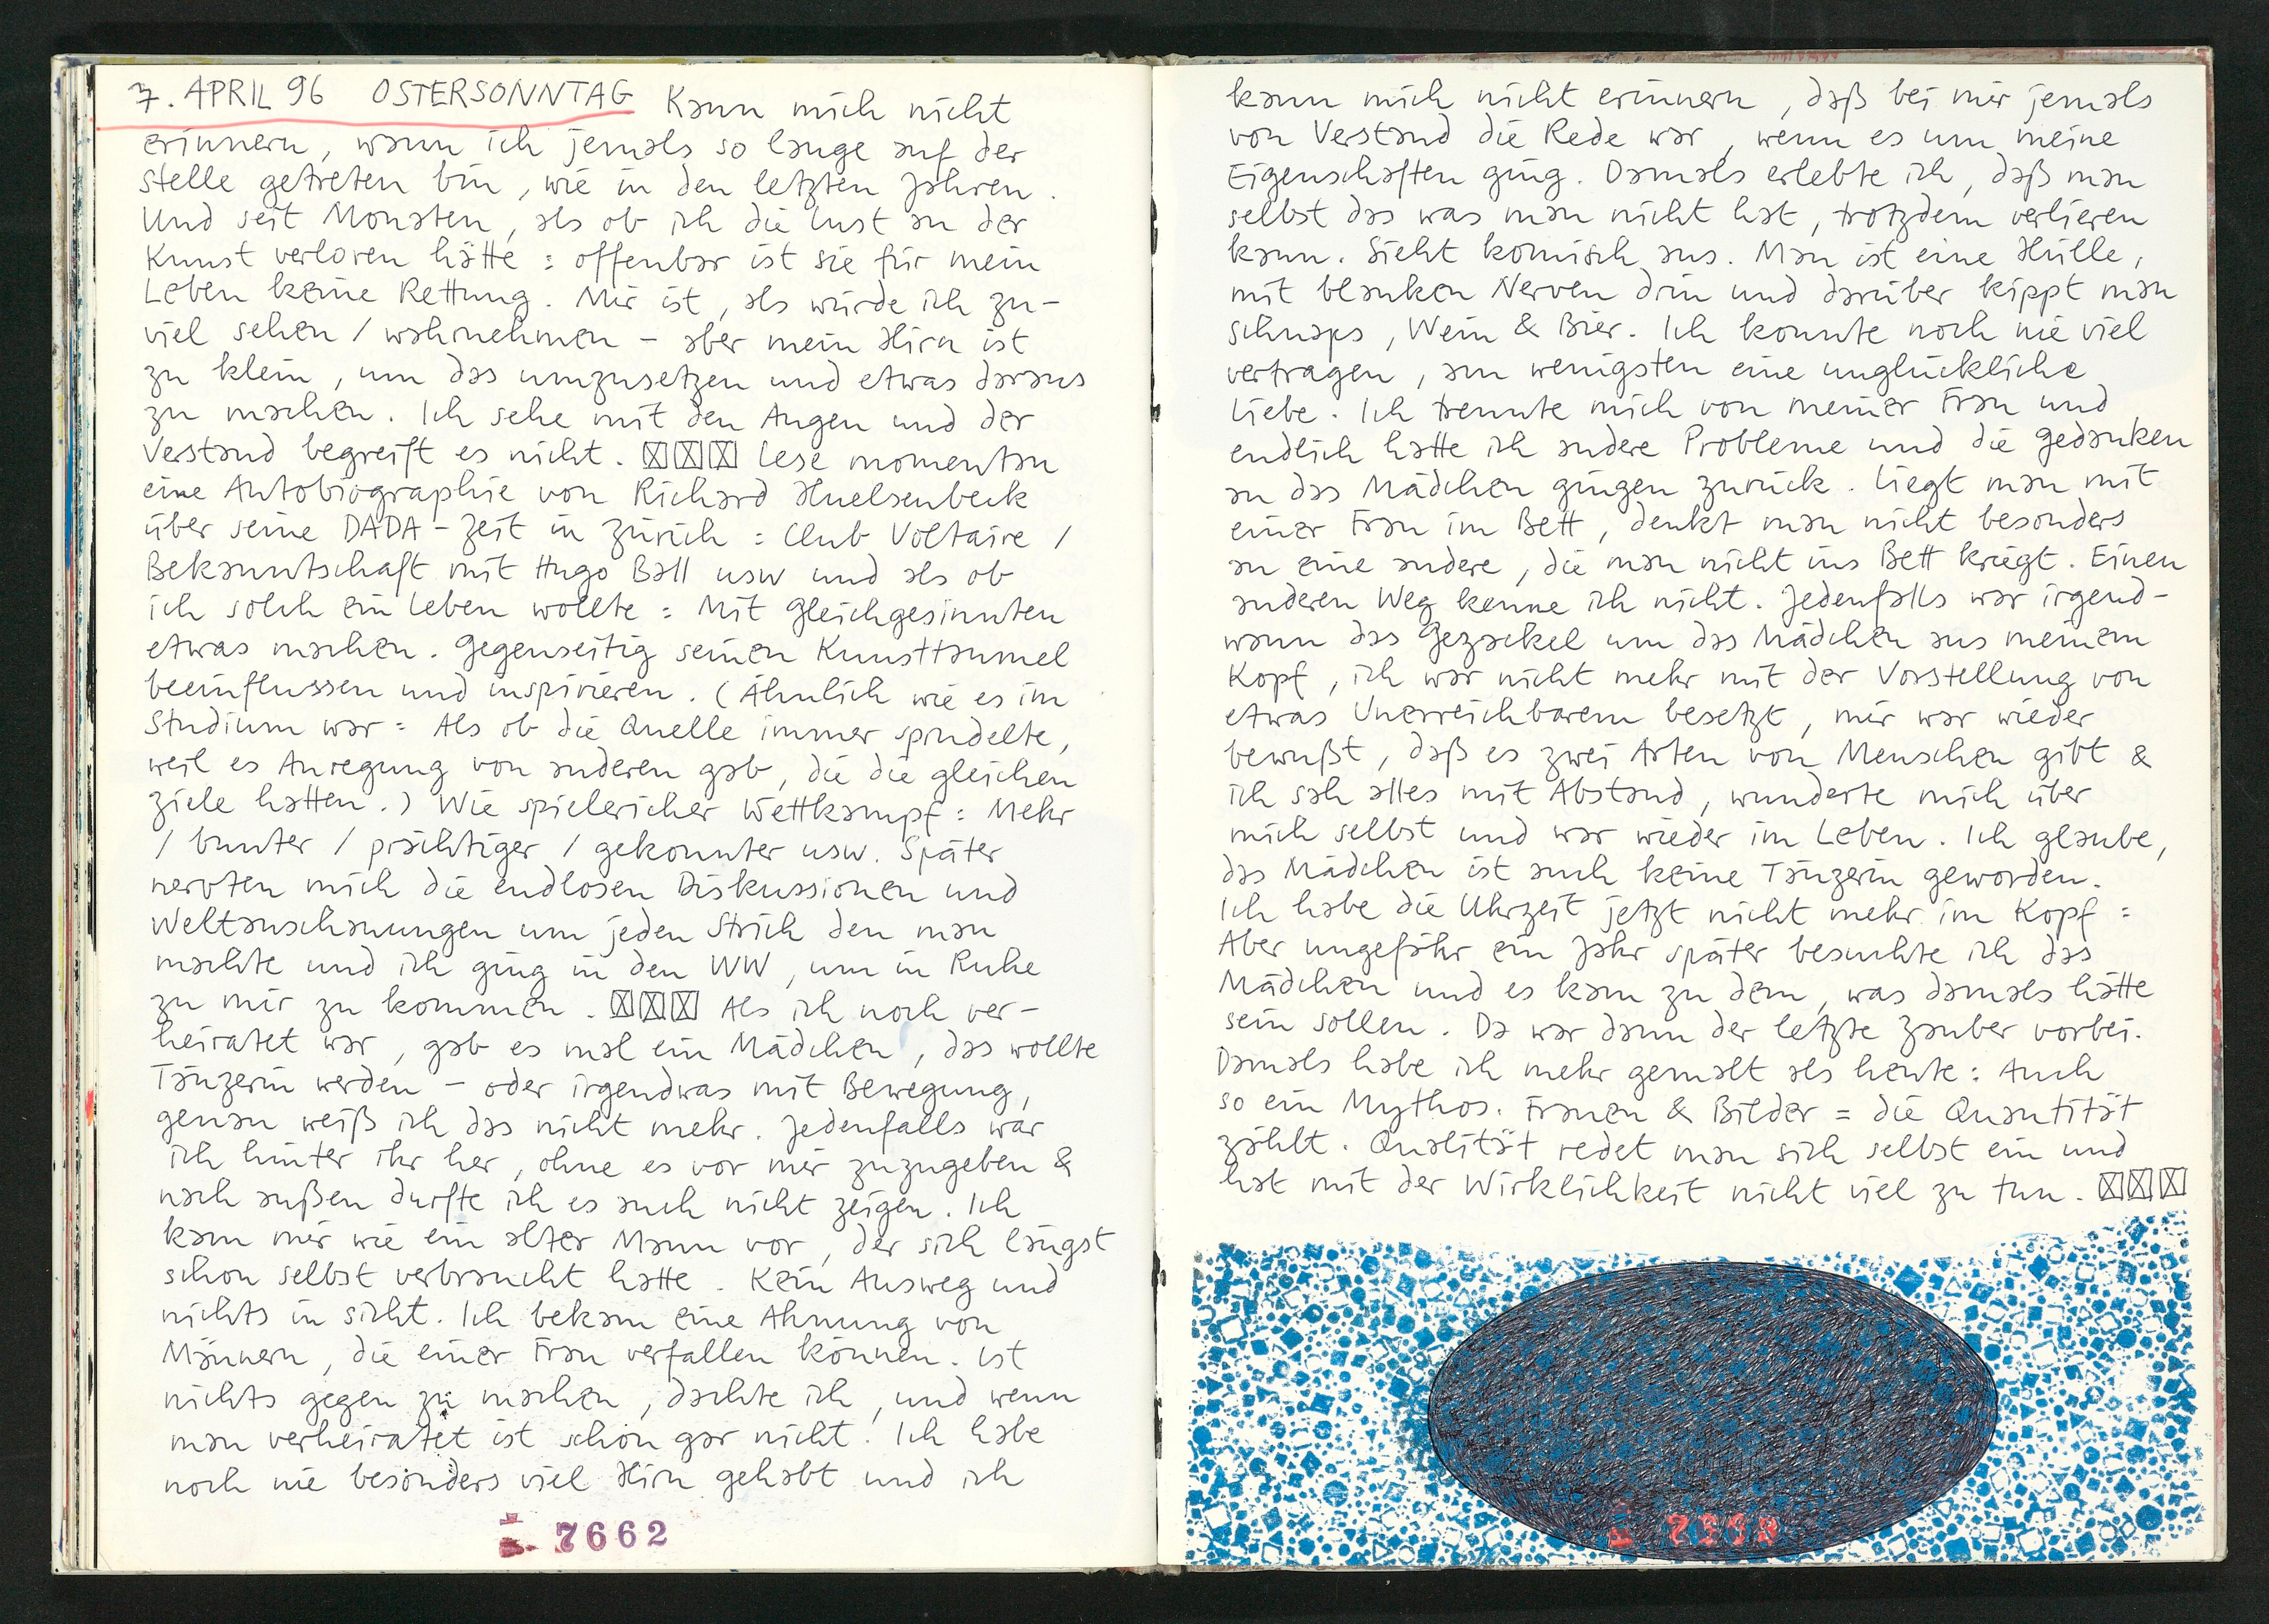 7. APRIL 96 OSTERSONNTAG Kann mich nicht
erinnern, wann ich jemals so lange auf der
Stelle getreten bin, wie in den letzten Jahren.
Und seit Monaten, als ob ich die Lust an der
Kunst verloren hätte : offenbar ist sie für mein
Leben keine Rettung. Mir ist, als würde ich zu-
viel sehen / wahrnehmen – aber mein Hirn ist
zu klein, um das umzusetzen und etwas daraus
zu machen. Ich sehe mit den Augen und der
Verstand begreift es nicht. ☒☒☒ Lese momentan
eine Autobiographie von Richard Huelsenbeck
über seine DADA-Zeit in Zürich : Club Voltaire /
Bekanntschaft mit Hugo Ball usw und als ob
ich solch ein Leben wollte : Mit Gleichgesinnten
etwas machen. Gegenseitig seinen Kunsttaumel
beeinflussen und inspirieren. (Ähnlich wie es im
Studium war : Als ob die Quelle immer sprudelte,
weil es Anregung von anderen gab, die die gleichen
Ziele hatten.) Wie spielericher Wettkampf : Mehr
/ bunter / prächtiger / gekonnter usw. Später
nervten mich die endlosen Diskussionen und
Weltanschauungen um jeden Strich den man
machte und ich ging in den WW, um in Ruhe
zu mir zu kommen. ☒☒☒ Als ich noch ver-
heiratet war, gab es mal ein Mädchen, das wollte
Tänzerin werden – oder irgendwas mit Bewegung,
genau weiß ich das nicht mehr. Jedenfalls war
ich hinter ihr her, ohne es vor mir zuzugeben &
nach außen durfte ich es auch nicht zeigen. Ich
kam mir wie ein alter Mann vor, der sich längst
schon selbst verbraucht hatte. Kein Ausweg und
nichts in Sicht. Ich bekam eine Ahnung von
Männern, die einer Frau verfallen können. Ist
nichts gegen zu machen, dachte ich, und wenn
man verheiratet ist schon gar nicht. Ich habe
noch nie besonders viel Hirn gehabt und ich
7662
kann mich nicht erinnern, daß bei mir jemals
von Verstand die Rede war, wenn es um meine
Eigenschaften ging. Damals erlebte ich, daß man
selbst das was man nicht hat, trotzdem verlieren
kann. Sieht komisch aus. Man ist eine Hülle,
mit blanken Nerven drin und darüber kippt man
Schnaps, Wein & Bier. Ich konnte noch nie viel
vertragen, am wenigsten eine unglückliche
Liebe. Ich trennte mich von meiner Frau und
endlich hatte ich andere Probleme und die Gedanken
an das Mädchen gingen zurück. Liegt man mit
einer Frau im Bett, denkt man nicht besonders
an eine andere, die man nicht ins Bett kriegt. Einen
anderen Weg kenne ich nicht. Jedenfalls war irgend-
wann das Gezackel um das Mädchen aus meinem
Kopf, ich war nicht mehr mit der Vorstellung von
etwas Unerreichbarem besetzt, mir war wieder
bewußt, daß es zwei Arten von Menschen gibt &
ich sah alles mit Abstand, wunderte mich über
mich selbst und war wieder im Leben. Ich glaube,
das Mädchen ist auch keine Tänzerin geworden.
Ich habe die Uhrzeit jetzt nicht mehr im Kopf :
Aber ungefähr ein Jahr später besuchte ich das
Mädchen und es kam zu dem, was damals hätte
sein sollen. Da war dann der letzte Zauber vorbei.
Damals habe ich mehr gemalt als heute : Auch
so ein Mythos. Frauen & Bilder = die Quantität
zählt. Qualität redet man sich selbst ein und
hat mit der Wirklichkeit nicht viel zu tun. ☒☒☒